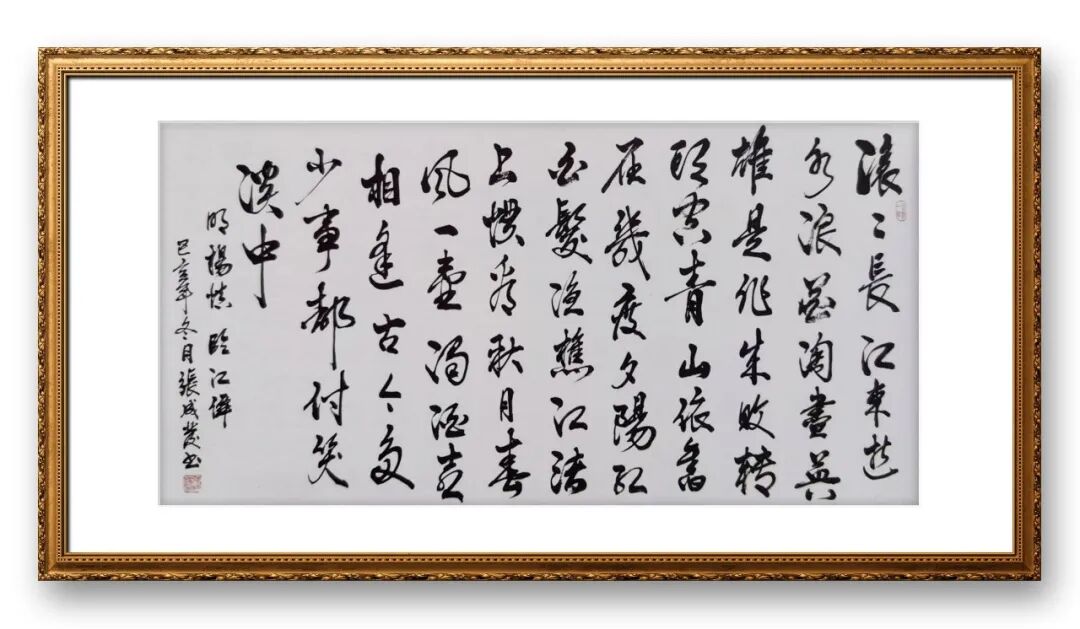 滚〻長江東逝
水浪花淘盡英
雄是非成敗轉
頭空青山依舊
在幾度夕陽紅
白髮漁樵江渚
上慣看秋月春
風一壺濁酒喜
相逢古今多
少事都付笑
談中
明楊慎臨江僊
己亥年冬月張成發书